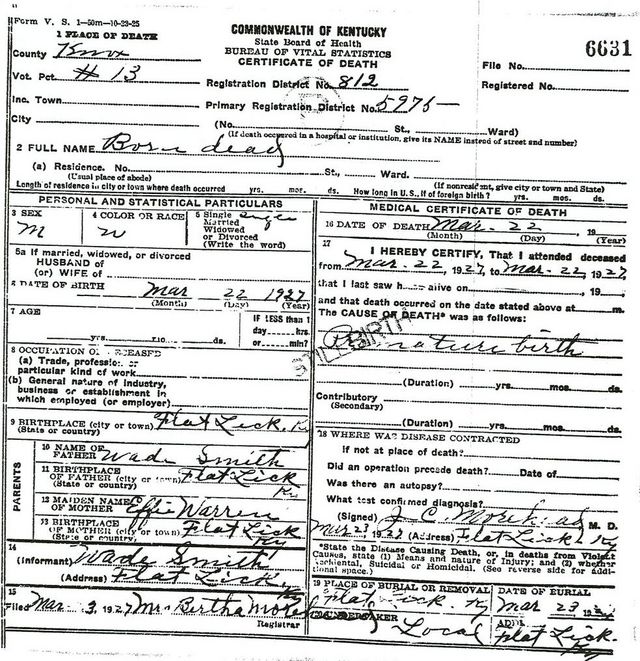 Form V. S. 1—50m—10-23-25
COMMONWEALTH OF KENTUCKY
State Board of Health
BUREAU OF VITAL STATISTICS
CERTIFICATE OF DEATH
1 PLACE OF DEATH
County Knox
File No. 6631
Vot. Pct. # 13
Registration District No. 812
Registered No.
Inc. Town
Primary Registration District No. 5975
City
(No. St., Ward)
(If death occurred in a hospital or institution, give its NAME instead of street and number)
2 FULL NAME Born dead
(a) Residence. No. St., Ward.
(Usual place of abode) (If nonresident, give city or town and State)
Length of residence in city or town where death occurred yrs. mos. ds. How long in U. S., if of foreign birth? yrs. mos. ds.
PERSONAL AND STATISTICAL PARTICULARS
3 SEX M
4 COLOR OR RACE W
5 Single Married Widowed or Divorced (Write the word) Single
5a If married, widowed, or divorced
HUSBAND of
(or) WIFE of
6 DATE OF BIRTH Mar 22 1927
(Month) (Day) (Year)
7 AGE
yrs. mos. ds.
IF LESS than 1
day hrs.
or min?
8 OCCUPATION OF DECEASED
(a) Trade, profession or
particular kind of work
(b) General nature of industry,
business or establishment in
which employed (or employer)
9 BIRTHPLACE (city or town) Flat Lick, Ky
(State or country)
PARENTS
10 NAME OF
FATHER Wade Smith
11 BIRTHPLACE
OF FATHER (city or town) Flat Lick
(State or country) Ky
12 MAIDEN NAME
OF MOTHER Effie Warren
13 BIRTHPLACE
OF MOTHER (city or town) Flat Lick
(State or country) Ky
14
(Informant) Wade Smith
(Address) Flat Lick Ky
15
Filed Mar 3 1927 Mrs Bertha
Registrar
MEDICAL CERTIFICATE OF DEATH
16 DATE OF DEATH Mar. 22, 19
(Month) (Day) (Year)
17
I HEREBY CERTIFY, That I attended deceased
from Mar. 22 1927, to Mar. 22, 1927
that I last saw h alive on , 19
and that death occurred on the date stated above at m.
The CAUSE OF DEATH* was as follows:
STILLBIRTH
Premature birth
(Duration) yrs. mos. ds.
Contributory
(Secondary)
(Duration) yrs. mos. ds.
18 WHERE WAS DISEASE CONTRACTED
If not at place of death?
Did an operation precede death? Date of
Was there an autopsy?
What test confirmed diagnosis?
(Signed) J. C. M. D.
Mar 1927 (Address) Flat Lick Ky
*State the Disease Causing Death, or, in deaths from Violent
Causes, state (1) Means and nature of Injury; and (2) whether
Accidental, Suicidal or Homicidal. (See reverse side for addi-
tional space.)
19 PLACE OF BURIAL OR REMOVAL
Flat Lick. Ky
DATE OF BURIAL
Mar 23 19
20 UNDERTAKER
Local
ADDRESS
Flat Lick.
Ky